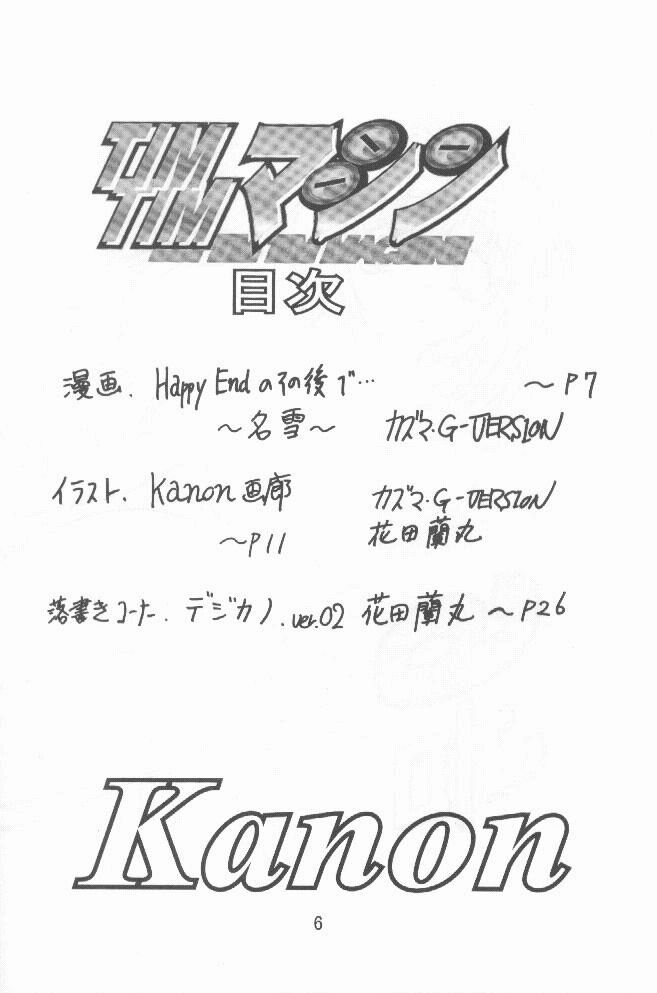 TIM TIM マシン
目次
漫画、Happy Endのその後で… 〜P7
〜名雪〜 カズマ・G-VERSION
イラスト、Kanon画廊 カズマ・G-VERSION
〜P11 花田蘭丸
落書きコーナー、デジカノ、ver.02 花田蘭丸 〜P26
Kanon
6